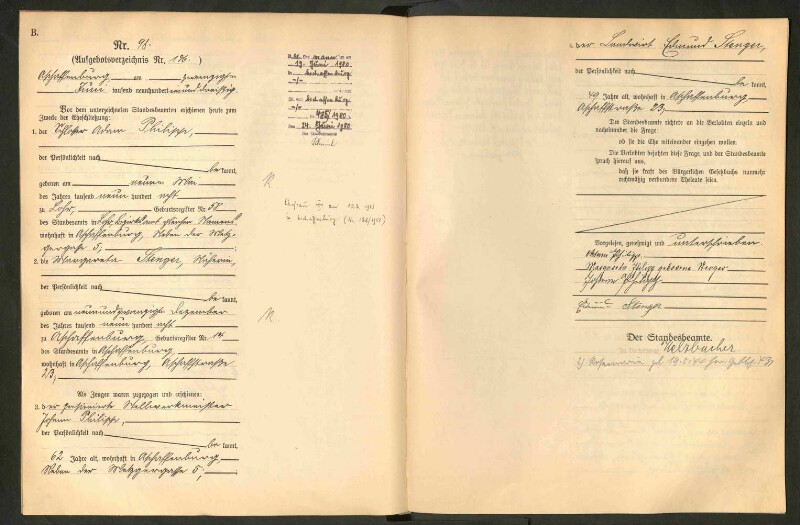 B.
Nr. 98.
(Aufgebotsverzeichnis Nr. 136.)
Aschaffenburg, am zwanzigsten
Juni tausend neunhundert neununddreißig
Vor dem unterzeichneten Standesbeamten erschienen heute zum
Zwecke der Eheschließung:
1. der Schlosser Adam Philipp,
der Persönlichkeit nach bekannt,
geboren am neunten Mai
des Jahres tausend neun hundert acht
zu Lohr, Geburtsregister Nr. 57
des Standesamts in Lohr, Bezirksamt gleichen Namens,
wohnhaft in Aschaffenburg, Neben der Metz-
gergasse 5,
2. die Margareta Stenger, Näherin,
der Persönlichkeit nach bekannt,
geboren am neunundzwanzigsten Dezember
des Jahres tausend neun hundert acht
zu Aschaffenburg, Geburtsregister Nr. 14.
des Standesamts in Aschaffenburg
wohnhaft in Aschaffenburg, Aschaffstraße
23,
Als Zeugen waren zugezogen und erschienen:
3. der pensionierte Stellwerkmeister
Johann Philipp,
der Persönlichkeit nach bekannt,
62 Jahre alt, wohnhaft in Aschaffenburg,
Neben der Metzgergasse 5,
13. Juni 1980
Aschaffenburg
Aschaffenburg
1980
24. Juni 1980
in Aschaffenburg
4. der Landwirt Edmund Stenger,
der Persönlichkeit nach bekannt,
49 Jahre alt, wohnhaft in Aschaffenburg
Aschaffstraße 23,
Der Standesbeamte richtete an die Verlobten einzeln und
nacheinander die Frage
ob sie die Ehe miteinander eingehen wollen.
Die Verlobten bejahten diese Frage, und der Standesbeamte
sprach hierauf aus,
daß sie kraft des Bürgerlichen Gesetzbuchs nunmehr
rechtmäßig verbundene Eheleute seien.
Vorgelesen, genehmigt und unterschrieben
Adam Philipp
Margareta Philipp geborene Stenger
Johann Philipp
Edmund Stenger
Der Standesbeamte.
In Vertretung: Welzbacher
1) Rosemarie